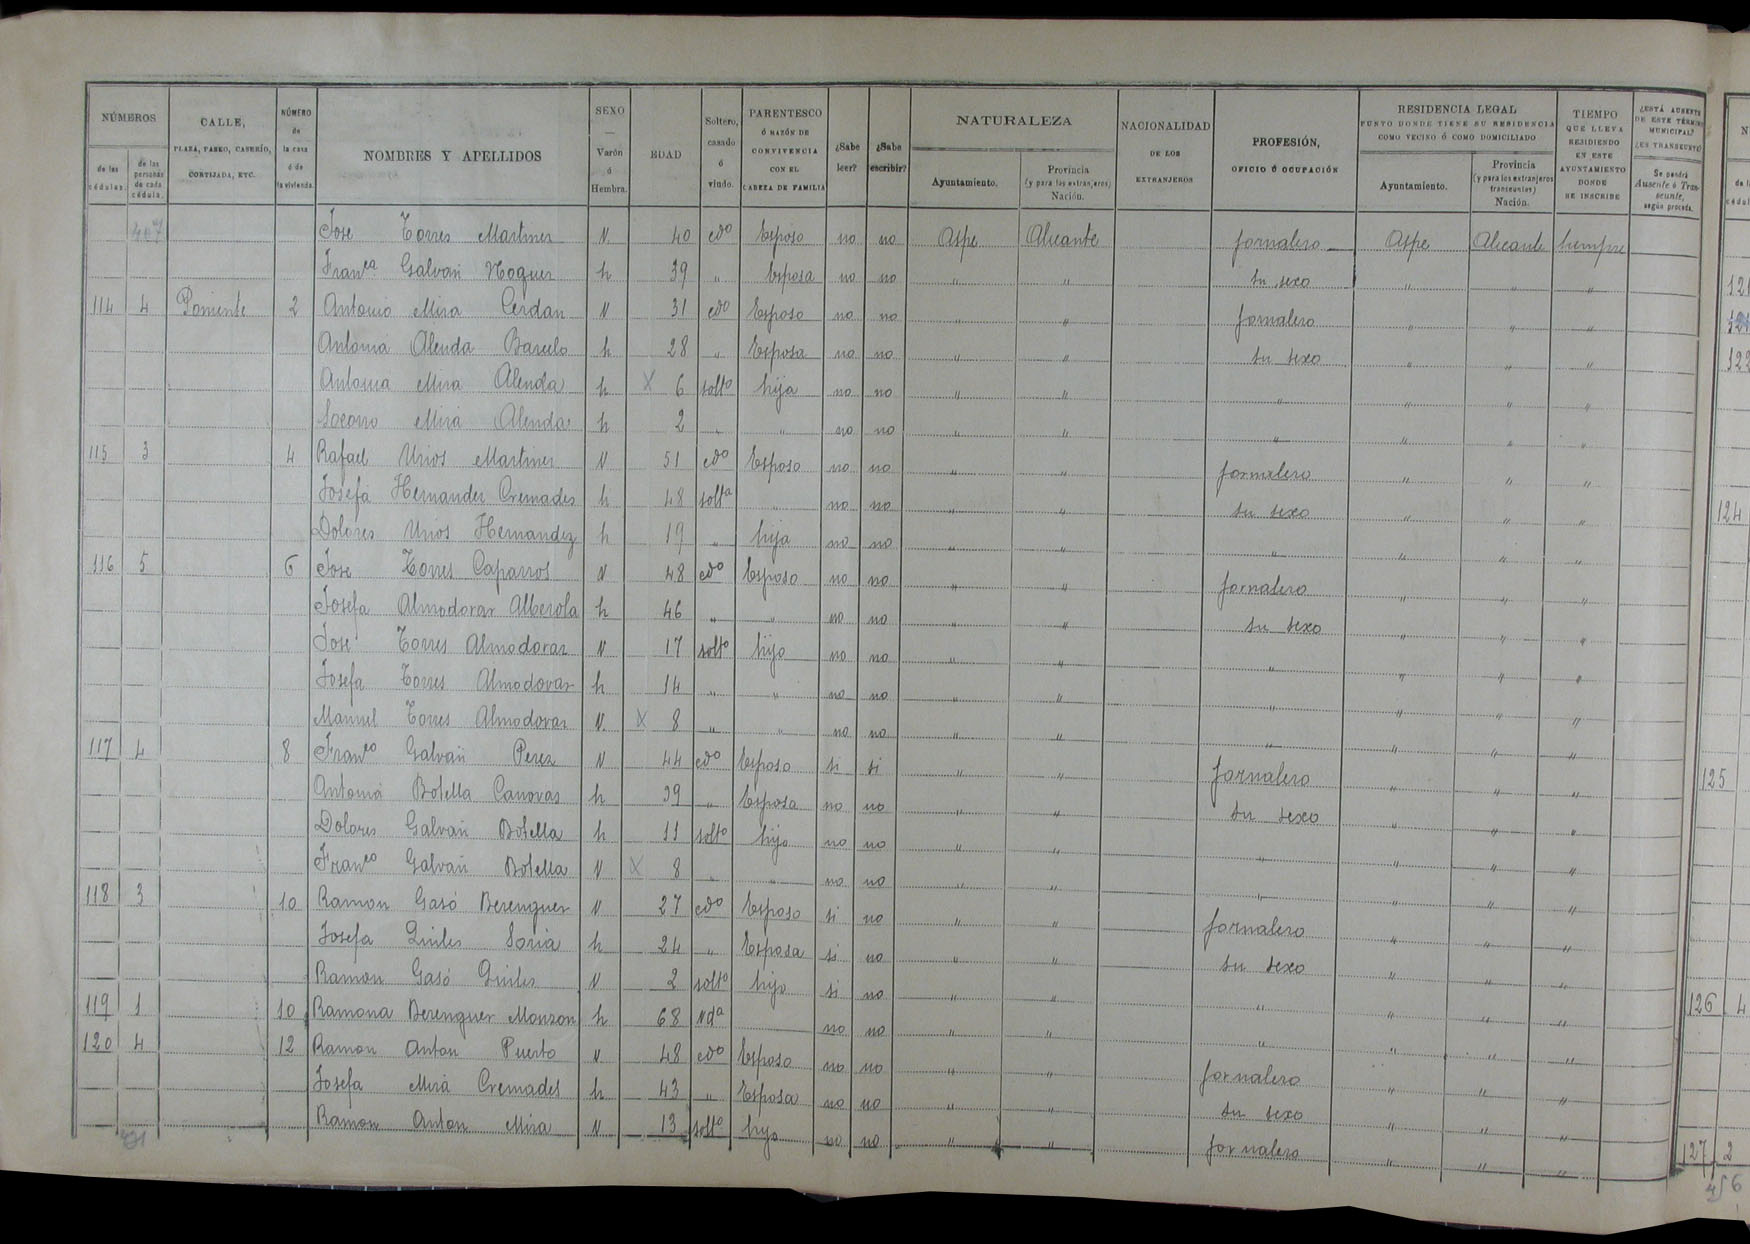 NÚMEROS | CALLE, PLAZA, PASEO, CASERÍO, CORTIJADA, ETC. | NÚMERO de la casa ó de la vivienda. | NOMBRES Y APELLIDOS | SEXO — Varón ó Hembra. | EDAD | Soltero, casado ó viudo. | PARENTESCO Ó RAZÓN DE CONVIVENCIA CON EL CABEZA DE FAMILIA | ¿Sabe leer? | ¿Sabe escribir? | NATURALEZA | NACIONALIDAD DE LOS EXTRANJEROS | PROFESIÓN, OFICIO Ó OCUPACIÓN | RESIDENCIA LEGAL PUNTO DONDE TIENE SU RESIDENCIA COMO VECINO Ó COMO DOMICILIADO | TIEMPO QUE LLEVA RESIDIENDO EN ESTE AYUNTAMIENTO DONDE SE INSCRIBE | ¿ESTÁ AUSENTE DE ESTE TÉRMINO MUNICIPAL? ¿ES TRANSEUNTE?
de las cédulas. | de las personas de cada cédula. | Ayuntamiento. | Provincia (y para los extranjeros) Nación. | Ayuntamiento. | Provincia (y para los extranjeros transeuntes) Nación. | Se pondrá Ausente ó Transeunte, según proceda.
407 Jose Torres Martinez V. 40 cdo Esposo no no Aspe Alicante jornalero Aspe Alicante siempre
Franca Galvañ Noguer h 39 " Esposa no no " " su sexo " " "
114 4 Poniente 2 Antonio Mira Cerdan V 31 cdo Esposo no no " " jornalero " " "
Antonia Alenda Barcelo h 28 " Esposa no no " " su sexo " " "
Antonia Mira Alenda h X 6 solto hija no no " " " " " "
Socorro Mira Alenda h 2 " " no no " " " " " "
115 3 4 Rafael Urios Martinez V 51 cdo Esposo no no " " jornalero " " "
Josefa Hernandez Cremades h 48 solta " no no " " su sexo " " "
Dolores Urios Hernandez h 19 " hija no no " " " " " "
116 5 6 Jose Torres Caparros V 48 cdo Esposo no no " " jornalero " " "
Josefa Almodovar Alberola h 46 " " no no " " su sexo " " "
Jose Torres Almodovar V 17 solto hijo no no " " " " " "
Josefa Torres Almodovar h 14 " " no no " " " " " "
Manuel Torres Almodovar V. X 8 " " no no " " " " " "
117 4 8 Franco Galvañ Perez V 44 cdo Esposo si si " " jornalero " " "
Antonia Botella Canovas h 39 " Esposa no no " " su sexo " " "
Dolores Galvañ Botella h 11 solto hijo no no " " " " " "
Franco Galvañ Botella V X 8 " " no no " " " " " "
118 3 10 Ramon Gasó Berenguer V 27 cdo Esposo si no " " jornalero " " "
Josefa Quiles Soria h 24 " Esposa si no " " su sexo " " "
Ramon Gasó Quiles V 2 solto hijo si no " " " " " "
119 1 10 Ramona Berenguer Monzon h 68 Vda no no " " " " " "
120 4 12 Ramon Anton Puerto V 48 cdo Esposo no no " " jornalero " " "
Josefa Mira Cremades h 43 " Esposa no no " " su sexo " " "
Ramon Anton Mira V 13 solto hijo no no " " jornalero " " "
122
124
125
126 4
127 2